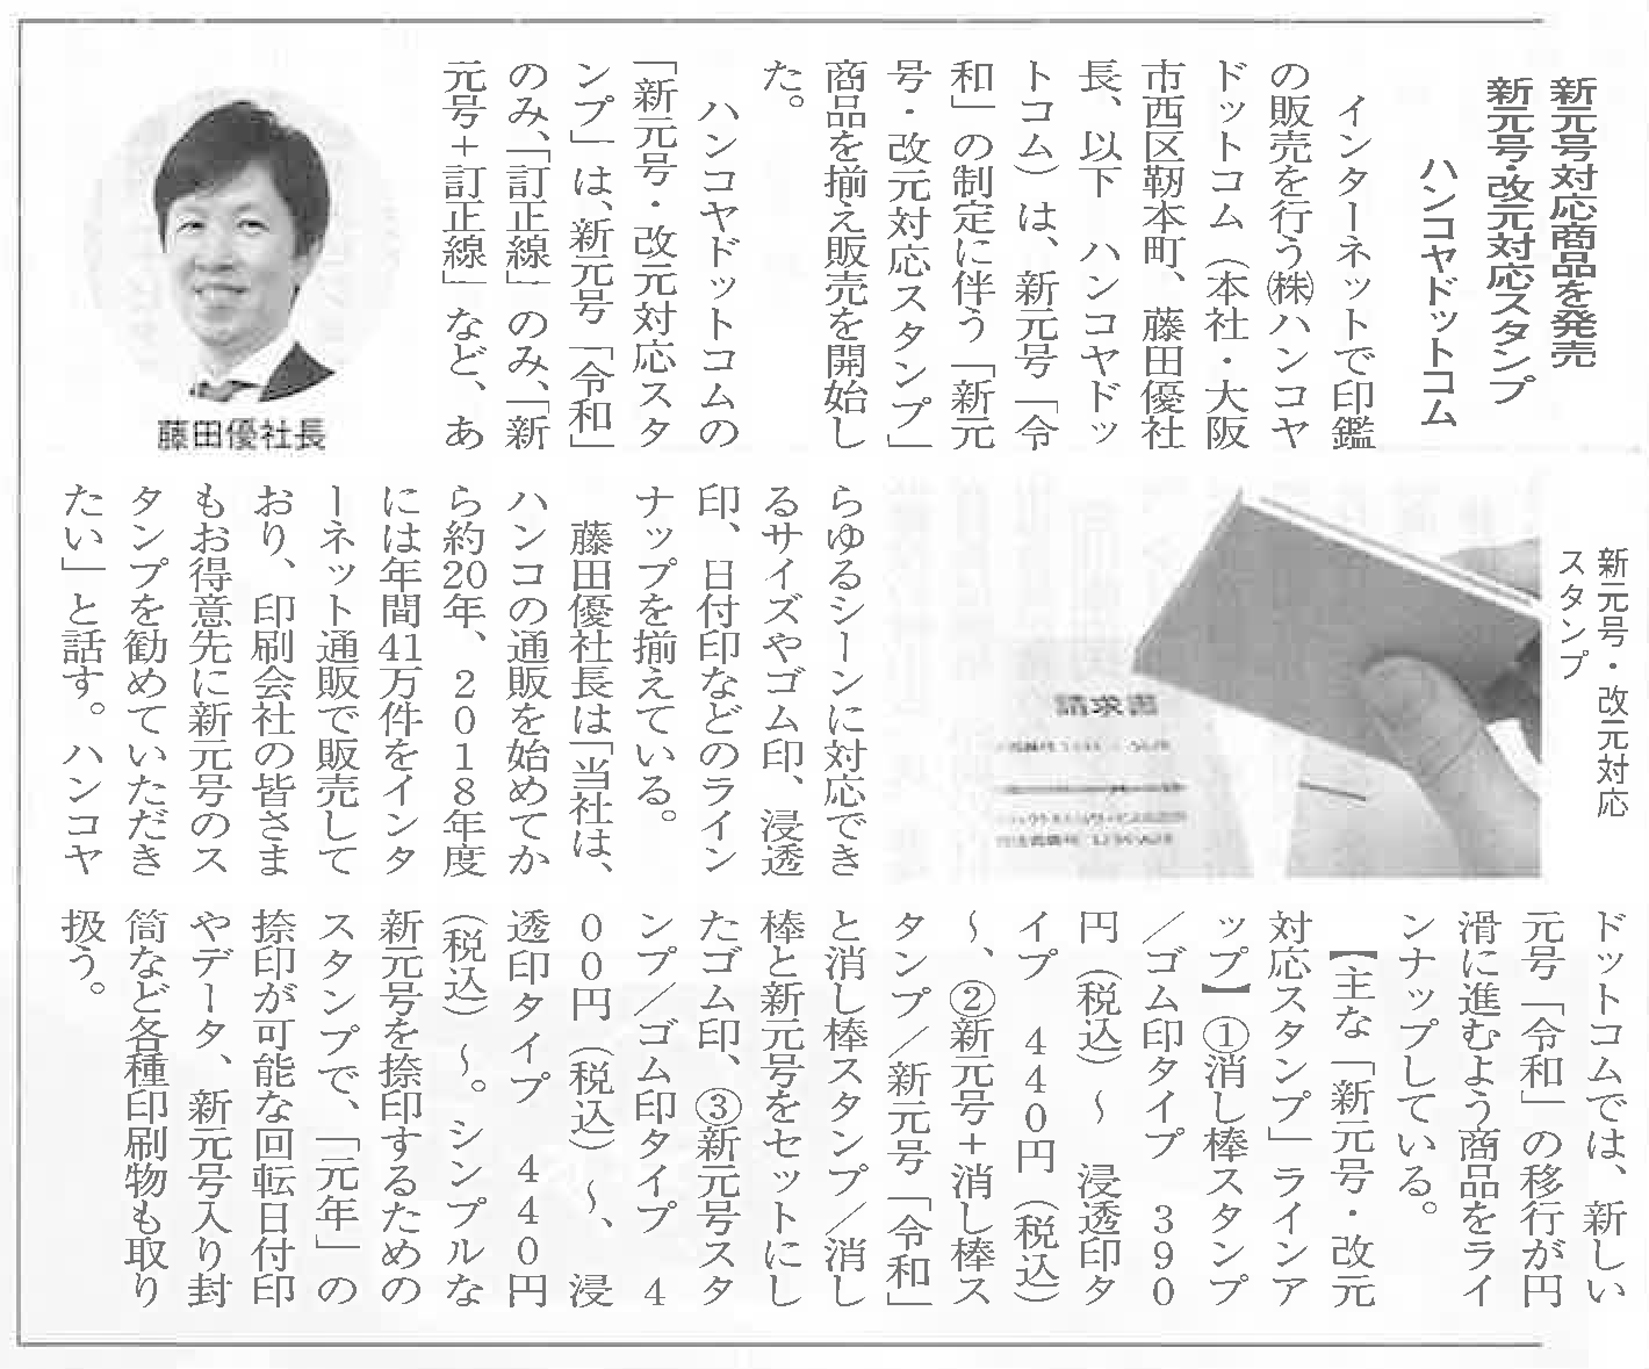 新元号対応商品を発売
新元号・改元対応スタンプ
ハンコヤドットコム
インターネットで印鑑
の販売を行う㈱ハンコヤ
ドットコム（本社・大阪
市西区靭本町、藤田優社
長、以下 ハンコヤドッ
トコム）は、新元号「令
和」の制定に伴う「新元
号・改元対応スタンプ」
商品を揃え販売を開始し
た。
ハンコヤドットコムの
「新元号・改元対応スタ
ンプ」は、新元号「令和」
のみ、「訂正線」のみ、「新
元号＋訂正線」など、あ
藤田優社長
新元号・改元対応
スタンプ
請求書
らゆるシーンに対応でき
るサイズやゴム印、浸透
印、日付印などのライン
ナップを揃えている。
藤田優社長は「当社は、
ハンコの通販を始めてか
ら約20年、2018年度
には年間41万件をインタ
ーネット通販で販売して
おり、印刷会社の皆さま
もお得意先に新元号のス
タンプを勧めていただき
たい」と話す。ハンコヤ
ドットコムでは、新しい
元号「令和」の移行が円
滑に進むよう商品をライ
ンナップしている。
【主な「新元号・改元
対応スタンプ」ラインア
ップ】①消し棒スタンプ
／ゴム印タイプ 390
円（税込）～ 浸透印タ
イプ 440円（税込）
～、②新元号＋消し棒ス
タンプ／新元号「令和」
と消し棒スタンプ／消し
棒と新元号をセットにし
たゴム印、③新元号スタ
ンプ／ゴム印タイプ 4
00円（税込）～、浸
透印タイプ 440円
（税込）～。シンプルな
新元号を捺印するための
スタンプで、「元年」の
捺印が可能な回転日付印
やデータ、新元号入り封
筒など各種印刷物も取り
扱う。